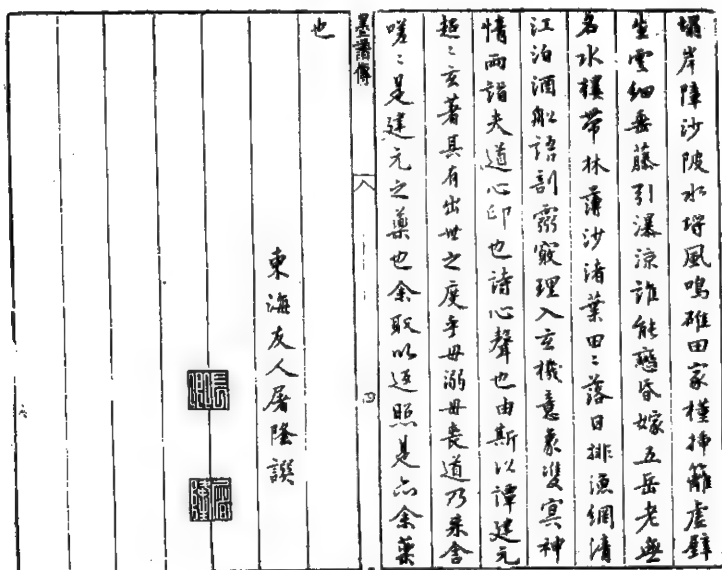 塌岸障沙陂水碍風鳴碓田家槿插籬虛壁
生雲細垂藤引瀑涼誰能戀昏嫁五岳老無
名水樓帶林薄沙渚葉田〻落日排漁網清
江泊酒船語剖霛竅理入玄機意象雙冥神
情兩詣夫道心印也詩心聲也由斯以譚建元
超〻玄著其有出世之度乎毋溺毋喪道乃來舍
嗟〻是建元之藥也余取以返照是亦余藥
墨譜傳 八 四
也
東海友人屠隆譔
長卿
屠隆